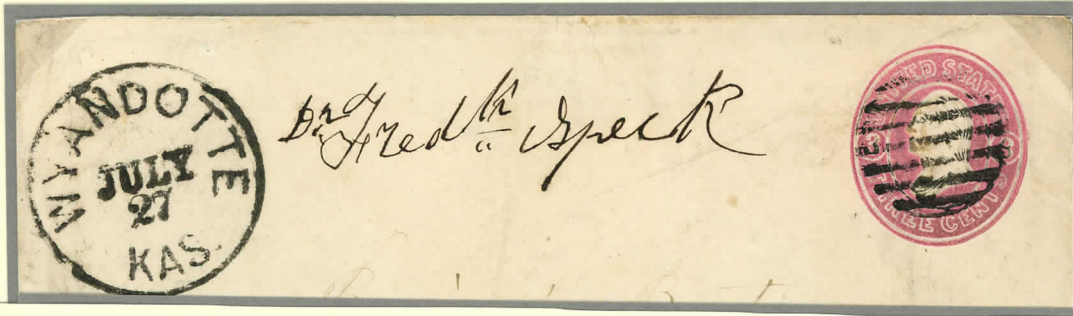 WYANDOTTE
JULY
27
KAS.
Dr. Fredk Speck
UNITED STATES
THREE CENTS